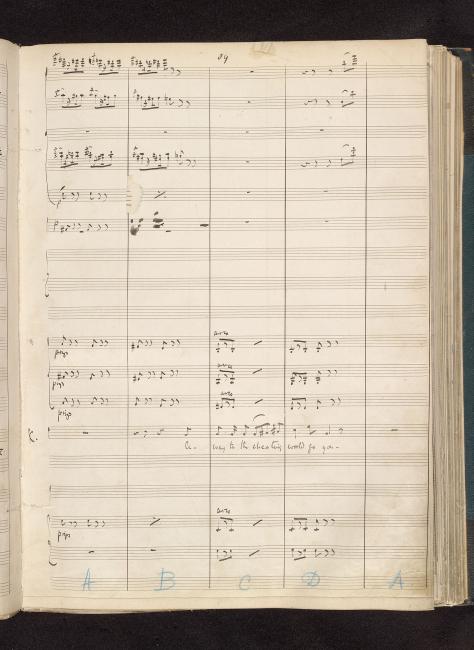 89
pizz
pizz
pizz
arco
arco
arco
K.
way to the cheating would go you -
arco
pizz
A B C D A